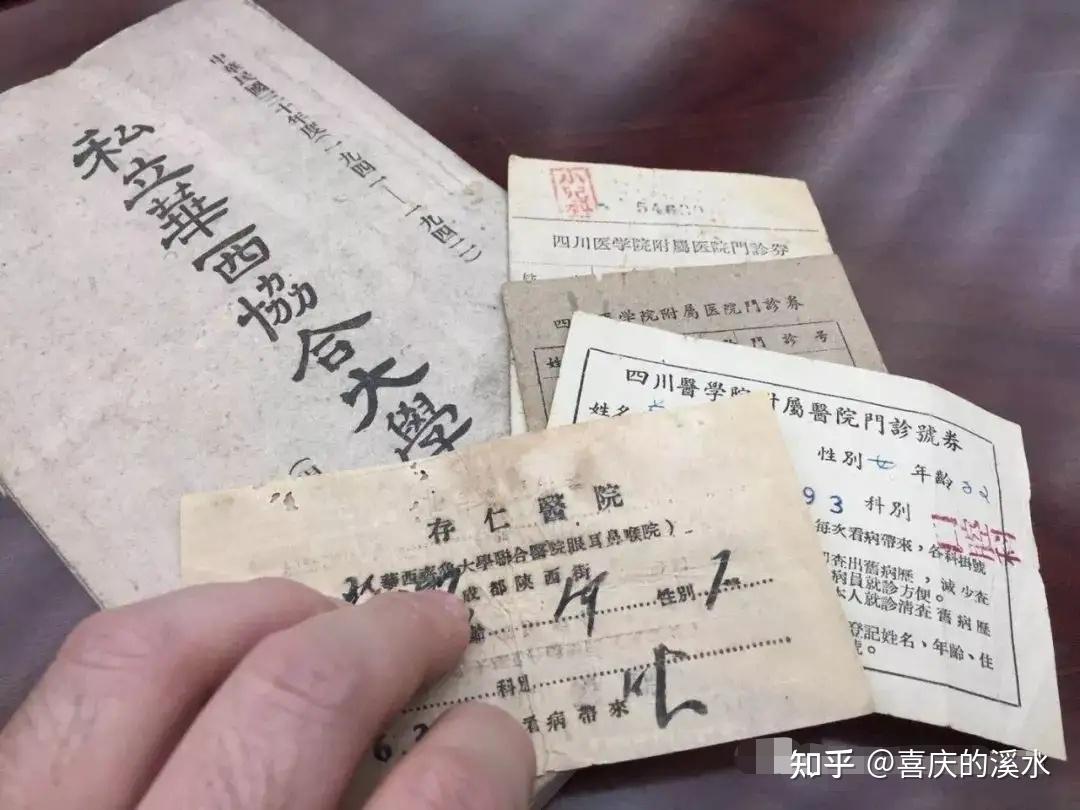 中華民國三十年度(一九四一—一九四二)
私立華西協合大學
小兒科
四川医学院附屬医院門診券
四川医学院附属医院門診券
門診号
四川醫學院附屬醫院門診號券
姓名
性別 女 年齡 32
93 科別
口腔科
每次看病帶來,各科掛號
查出舊病歷,減少查
病員就診方便。
本人就診清查舊病歷
登記姓名、年齡、住
號。
存仁醫院
華西齊魯大學聯合醫院眼耳鼻喉院)
成都陝西街
齡 19 性別
科別
看病帶來
知乎 @喜庆的溪水